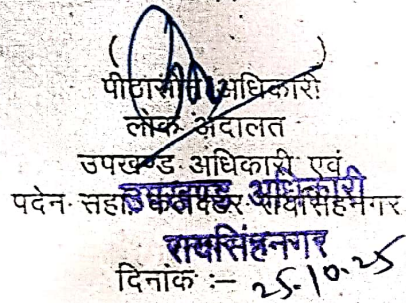 ( )
पीठासीन अधिकारी
लोक अदालत
उपखण्ड अधिकारी एवं
पदेन सहा० कलक्टर रायसिंहनगर
उपखण्ड अधिकारी
रायसिंहनगर
दिनांक :- 25.10.25